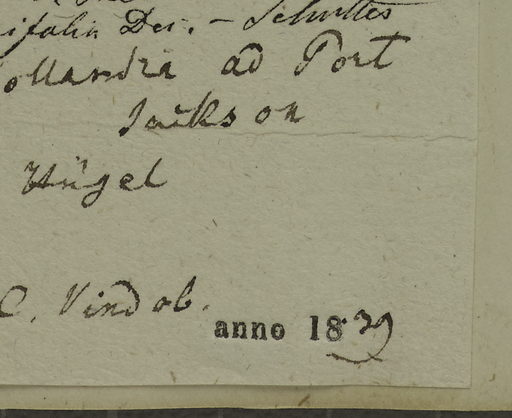 ifolia Dec. – Schultes
ollandia ad Port
Jackson
Hügel
C. Vindob.
anno 1839